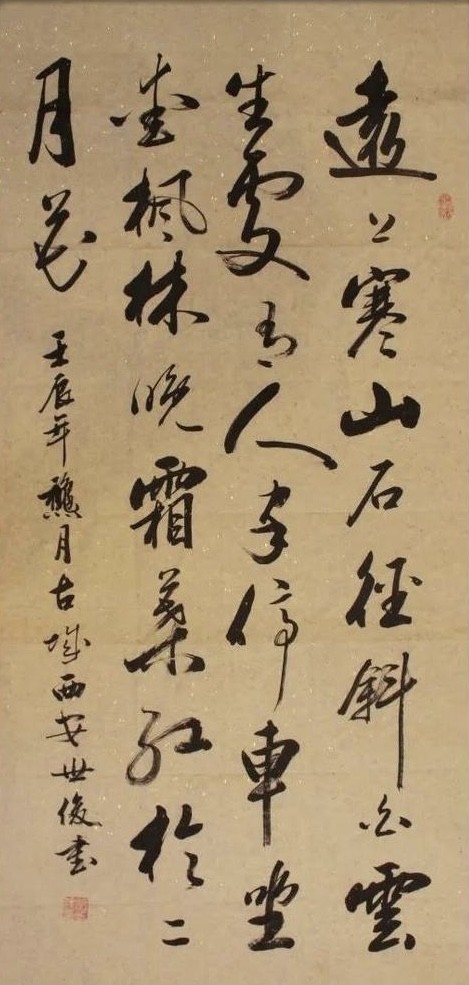 遠上寒山石徑斜白雲
生處有人家停車坐
愛楓林晚霜葉紅於二
月花
壬辰年龝月古城西安世俊書